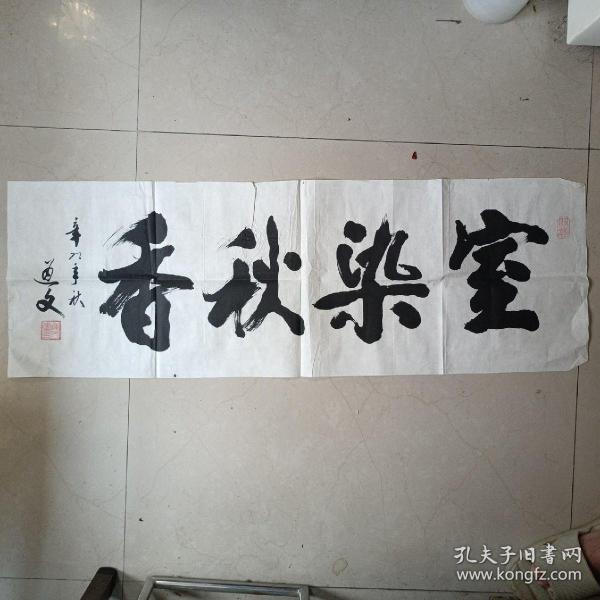 室染秋香
辛卯年秋
道文
孔夫子旧书网
www.kongfz.com